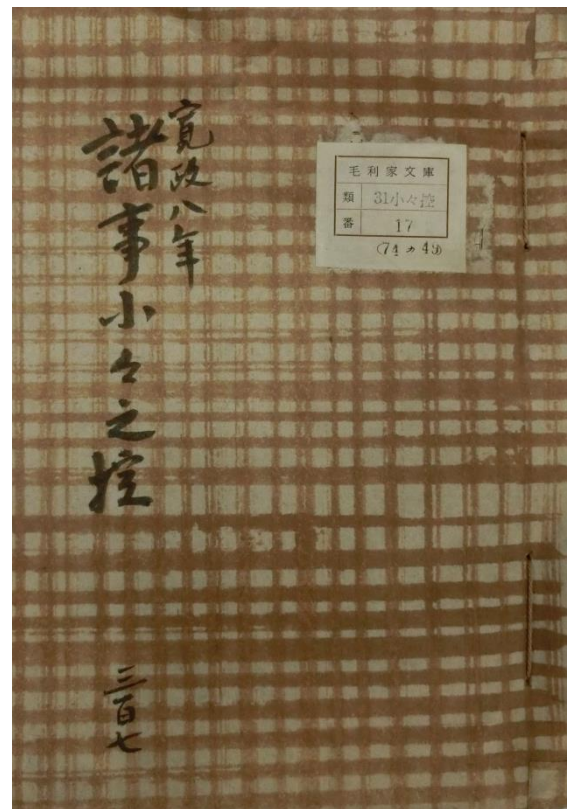 寛政八年
諸事小々之控
三百七
毛利家文庫
類 31小々控
番 17
(74ノ49)